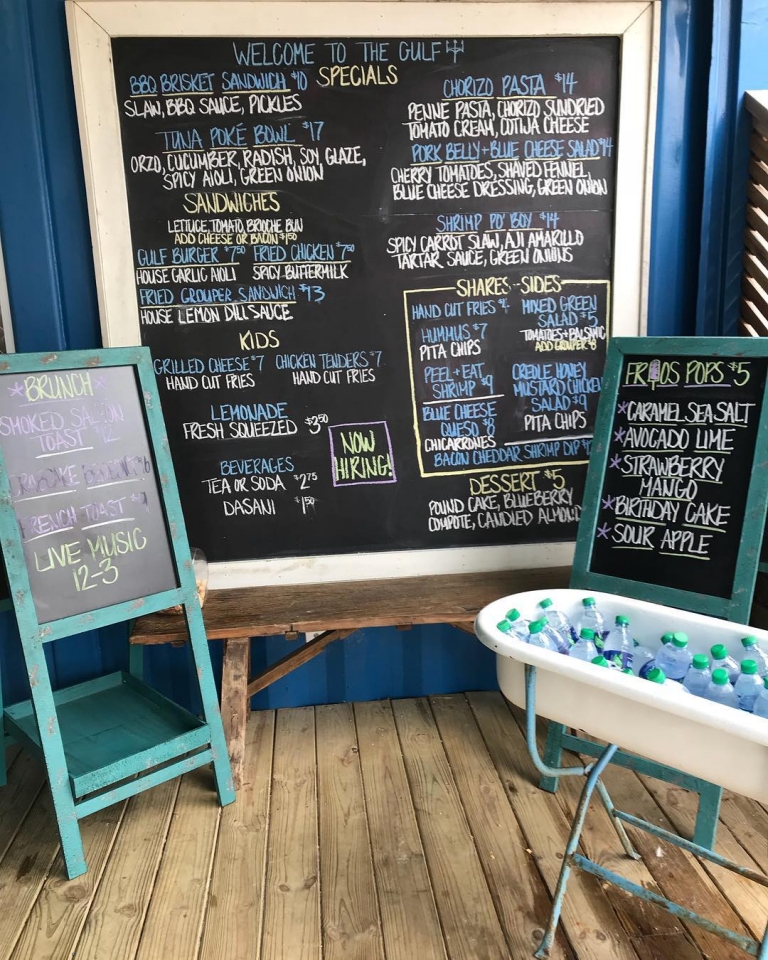 WELCOME TO THE GULF
SPECIALS
BBQ BRISKET SANDWICH $10
SLAW, BBQ SAUCE, PICKLES
TUNA POKÉ BOWL $17
ORZO, CUCUMBER, RADISH, SOY GLAZE,
SPICY AIOLI, GREEN ONION
SANDWICHES
LETTUCE, TOMATO, BRIOCHE BUN
ADD CHEESE OR BACON $1.50
GULF BURGER $7.50 FRIED CHICKEN $7.50
HOUSE GARLIC AIOLI SPICY BUTTERMILK
FRIED GROUPER SANDWICH $13
HOUSE LEMON DILL SAUCE
KIDS
GRILLED CHEESE $7 CHICKEN TENDERS $7
HAND CUT FRIES HAND CUT FRIES
LEMONADE
FRESH SQUEEZED $3.50
BEVERAGES
TEA OR SODA $2.75
DASANI $1.50
NOW
HIRING!
CHORIZO PASTA $14
PENNE PASTA, CHORIZO SUNDRIED
TOMATO CREAM, COTIJA CHEESE
PORK BELLY + BLUE CHEESE SALAD $14
CHERRY TOMATOES, SHAVED FENNEL,
BLUE CHEESE DRESSING, GREEN ONION
SHRIMP PO' BOY $14
SPICY CARROT SLAW, AJI AMARILLO
TARTAR SAUCE, GREEN ONIONS
SHARES-SIDES
HAND CUT FRIES
HUMMUS $7
PITA CHIPS
PEEL + EAT
SHRIMP $9
BLUE CHEESE
QUESO $8
CHICARRONES
MIXED GREEN
SALAD $5
TOMATOES + BALSAMIC
ADD GROUPER $8
CREOLE HONEY
MUSTARD CHICKEN
SALAD $9
PITA CHIPS
BACON CHEDDAR SHRIMP DIP
DESSERT $5
POUND CAKE, BLUEBERRY
COMPOTE, CANDIED ALMOND
*BRUNCH*
SMOKED SALMON
TOAST $12
FRENCH TOAST $9
LIVE MUSIC
12-3
FRIOS POPS $5
*CARAMEL SEA SALT
*AVOCADO LIME
*STRAWBERRY
MANGO
*BIRTHDAY CAKE
*SOUR APPLE